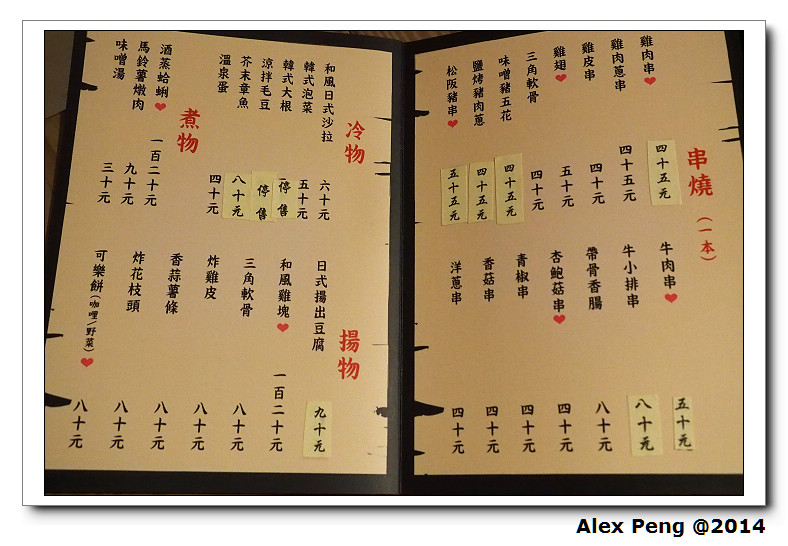 串燒（一本）
雞肉串❤ 四十五元
雞肉蔥串 四十五元
雞皮串 四十元
雞翅❤ 五十元
三角軟骨 四十元
味噌豬五花 四十五元
鹽烤豬肉蔥 四十五元
松阪豬串❤ 五十五元
牛肉串❤ 五十元
牛小排串 八十元
帶骨香腸 八十元
杏鮑菇串❤ 四十元
青椒串 四十元
香菇串 四十元
洋蔥串 四十元
冷物
和風日式沙拉 六十元
韓式泡菜 五十元
韓式大根 停售
涼拌毛豆 停售
芥末章魚 八十元
溫泉蛋 四十元
煮物
酒蒸蛤蜊❤ 一百二十元
馬鈴薯燉肉 九十元
味噌湯 三十元
揚物
日式揚出豆腐 九十元
和風雞塊❤ 一百二十元
三角軟骨 八十元
炸雞皮 八十元
香蒜薯條 八十元
炸花枝頭 八十元
可樂餅（咖哩/野菜）❤ 八十元
Alex Peng @2014